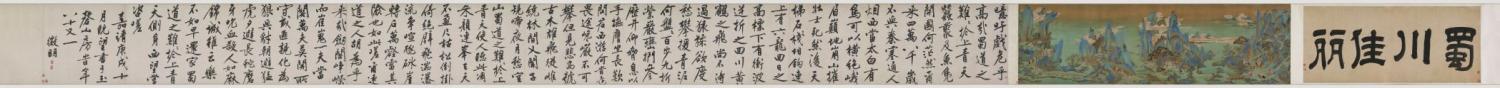 蜀川佳麗
噫吁戲危乎
高哉蜀道之
難難於上青天
蠶叢及魚鳧
開國何茫然爾
來四萬八千歲
不與秦塞通人
烟西當太白有
鳥道可以橫絕峨
眉巔地崩山摧
壯士死然後天
梯石棧相鉤連
上有六龍回日之
高標下有衝波
逆折之回川黃
鶴之飛尚不得
過猿猱欲度
愁攀援青泥
何盤盤百步九折
縈巖巒捫參
歷井仰脅息以
手撫膺坐長歎
問君西游何時還
畏途巉巖不可
攀但見悲鳥號
古木雄飛從雌
繞林間又聞子
規啼夜月愁空
山蜀道之難難於上
青天使人聽此凋
朱顏連峰去天
不盈尺枯松倒掛
倚絕壁飛湍瀑
流爭喧豗砯崖
轉石萬壑雷其
險也如此嗟爾遠
道之人胡為乎
來哉劍閣崢嶸
而崔嵬一夫當
關萬夫莫開所
守或匪親化為
狼與豺朝避猛
虎夕避長蛇磨
牙吮血殺人如麻
錦城雖云樂
不如早還家蜀
道之難難於上青
天側身西望常
咨嗟
嘉靖庚戌十
月既望書于玉
磬山房時年
八十又一
徵明